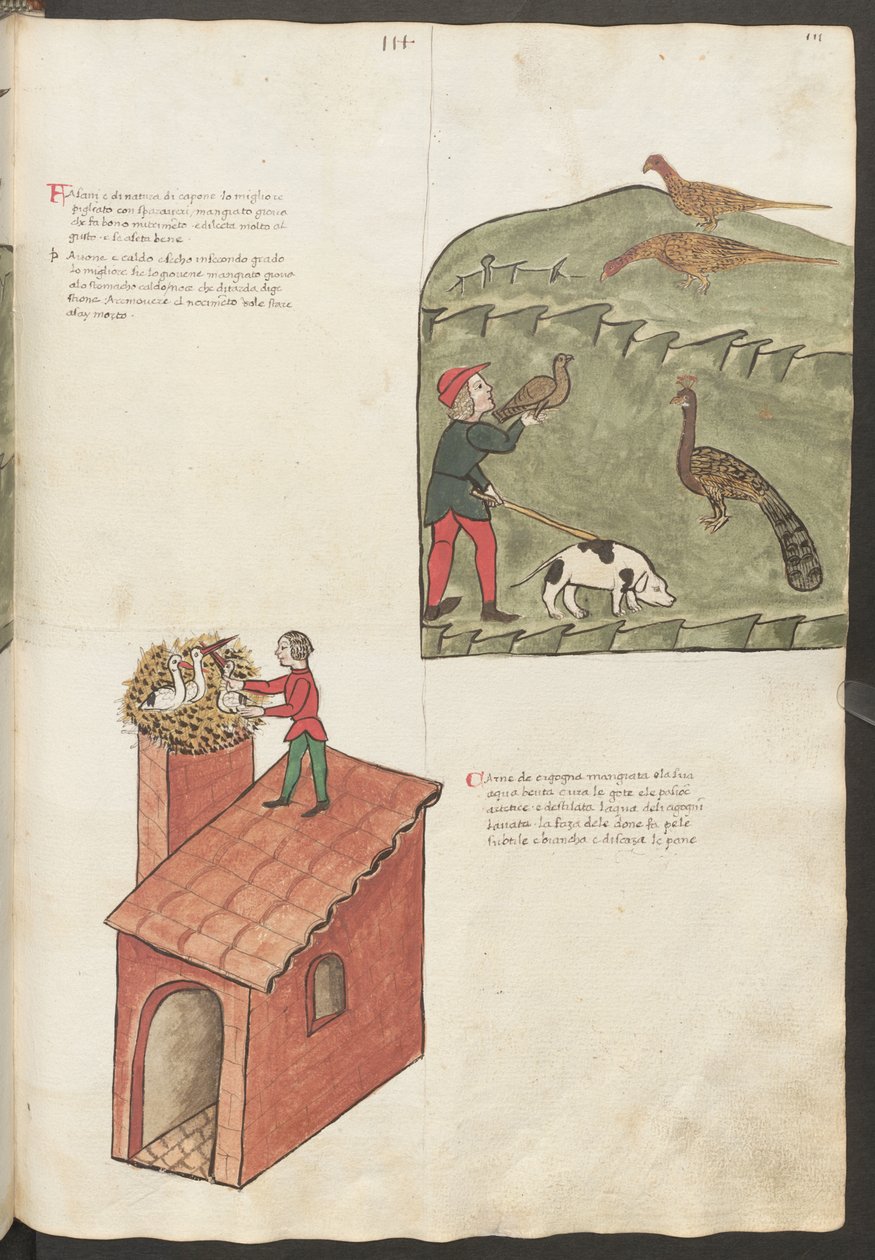 114
111
FAsani e di natura di capone · lo migliore
pigliato con sparaveri, mangiato giova
che fa bono nutrimẽto · e dileta molto al
gusto · e se aseta bene ·
Pavone e caldo e secho in secondo grado
lo migliore sie lo giovene mangiato giova
alo stomacho caldo, noce che ditarda dige
stione · A remouere el nocimẽto vole stare
asay morto ·
CArne de cigogna mangiata e la sua
aqua beuta cura le gote e le pasiõe
artetice · e destilata laqua deli cigogni
lauata · la faza dele done fa pele
subtile e biancha e discaza le pane